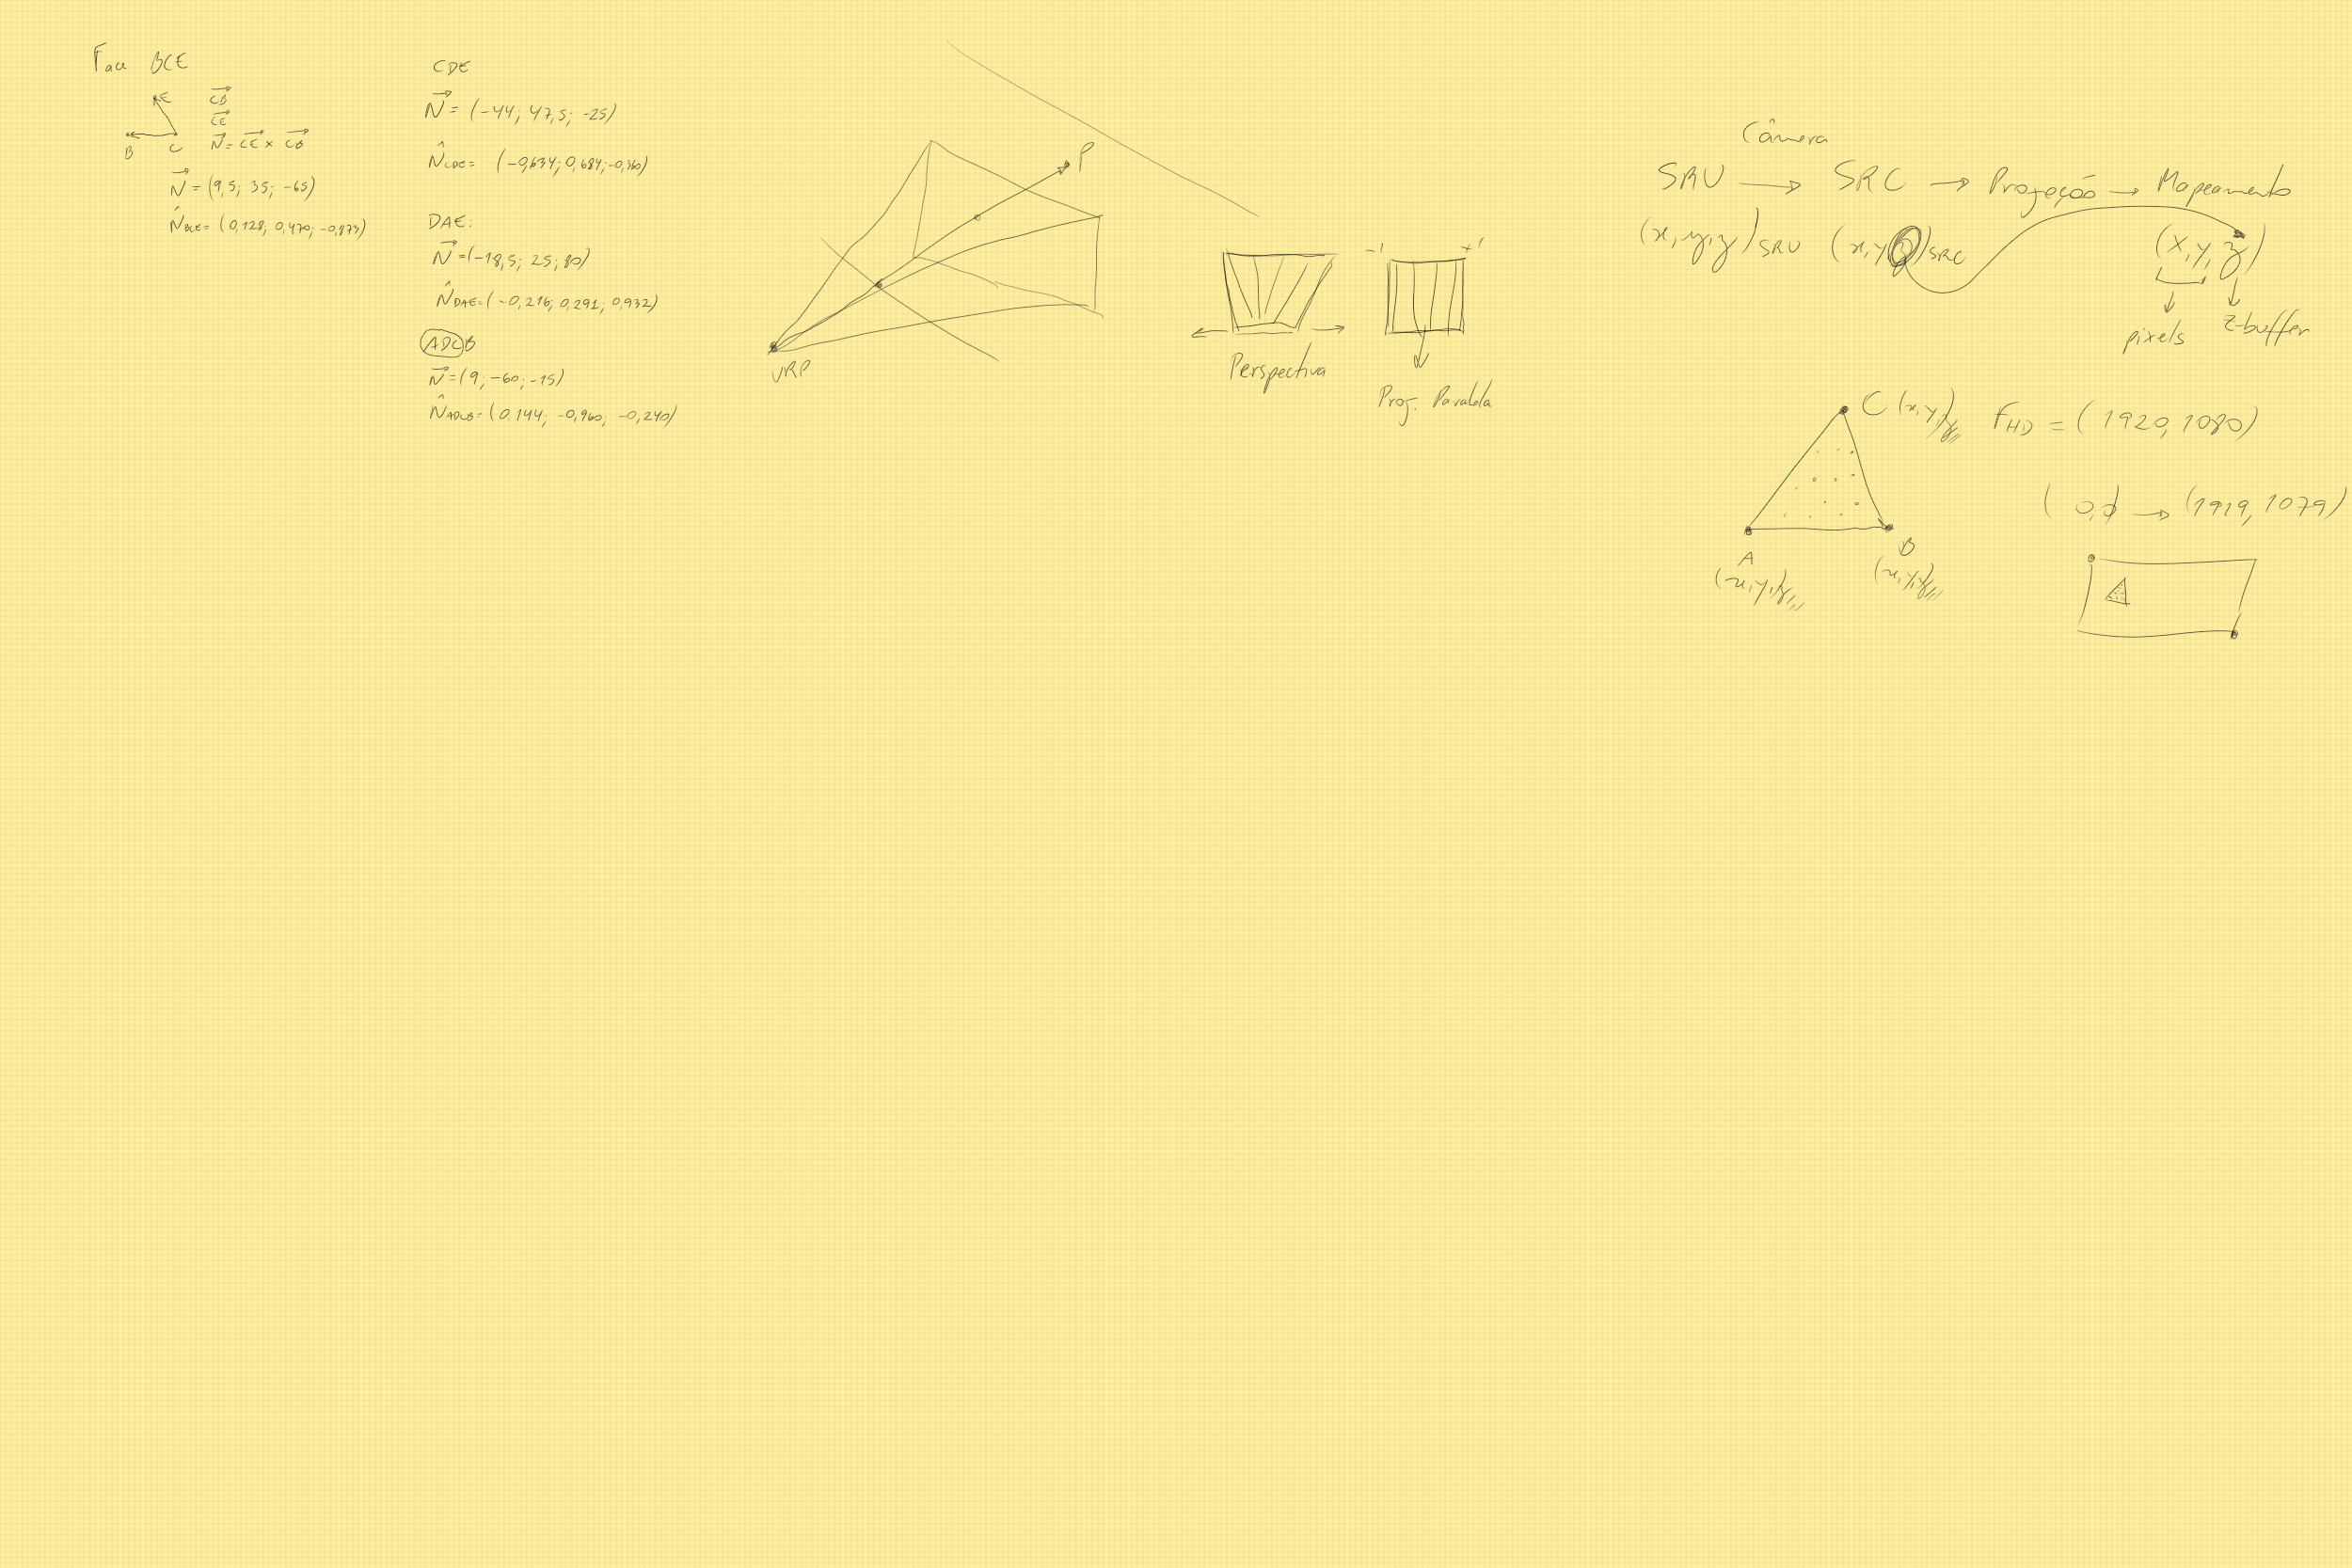 Face BCE
E
B C
CB
CE
N = CE × CB
N = (9,5; 35; -65)
N̂BCE = (0,128; 0,470; -0,873)
CDE
N = (-44; 47,5; -25)
N̂CDE = (-0,634; 0,684; -0,360)
DAE:
N = (-18,5; 25; 80)
N̂DAE = (-0,216; 0,291; 0,932)
ADCB
N = (9; -60; -15)
N̂ADCB = (0,144; -0,960; -0,240)
P
VRP
Perspectiva
-1 +1
Proj. Paralela
Câmera
SRU → SRC → Projeção → Mapeamento
(x, y, z)SRU (x, y, z)SRC (x, y, z)
pixels z-buffer
C (x, y, z)
A
(x, y, z)
B
(x, y, z)
FHD = (1920, 1080)
(0,0) → (1919, 1079)